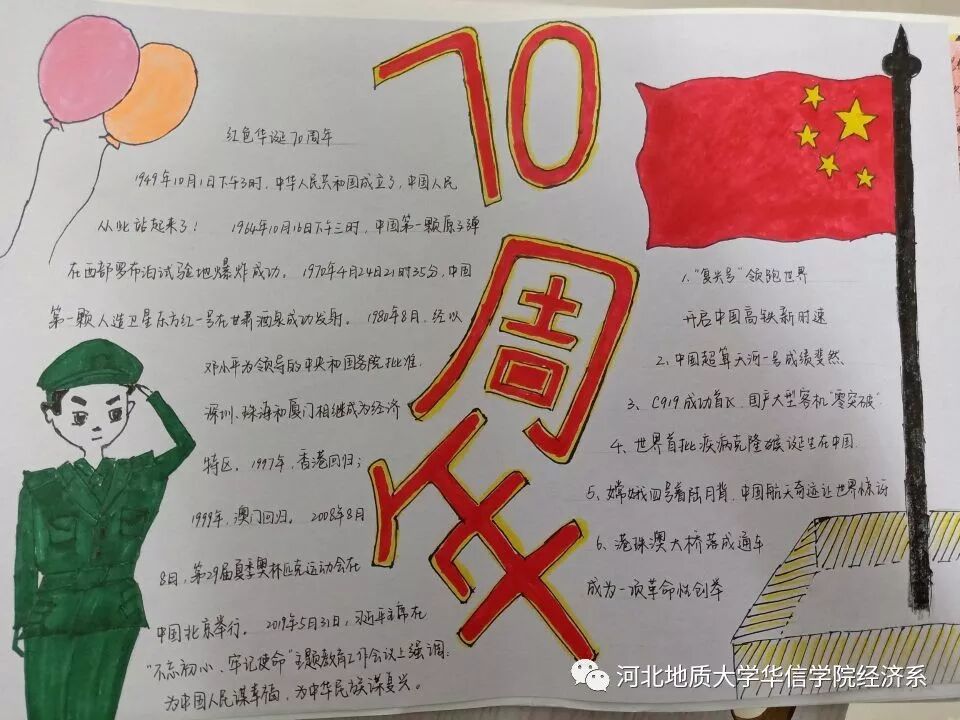 70
周年
红色华诞70周年
1949年10月1日下午3时,中华人民共和国成立了,中国人民
从此站起来了! 1964年10月16日下午三时,中国第一颗原子弹
在西部罗布泊试验地爆炸成功。1970年4月24日21时35分,中国
第一颗人造卫星东方红一号在甘肃酒泉成功发射。1980年8月,经以
邓小平为领导的中央和国务院批准,
深圳、珠海和厦门相继成为经济
特区。1997年,香港回归;
1999年,澳门回归。2008年8月
8日,第29届夏季奥林匹克运动会在
中国北京举行。2019年5月31日,习近平主席在
“不忘初心、牢记使命”主题教育工作会议上强调:
为中国人民谋幸福,为中华民族谋复兴。
1.“复兴号”领跑世界
开启中国高铁新时速
2、中国超算天河一号成绩斐然
3、C919成功首飞 国产大型客机“零突破”
4、世界首批疾病克隆猴诞生在中国
5、嫦娥四号着陆月背,中国航天奇迹让世界惊讶
6、港珠澳大桥落成通车
成为一项革命性创举
河北地质大学华信学院经济系